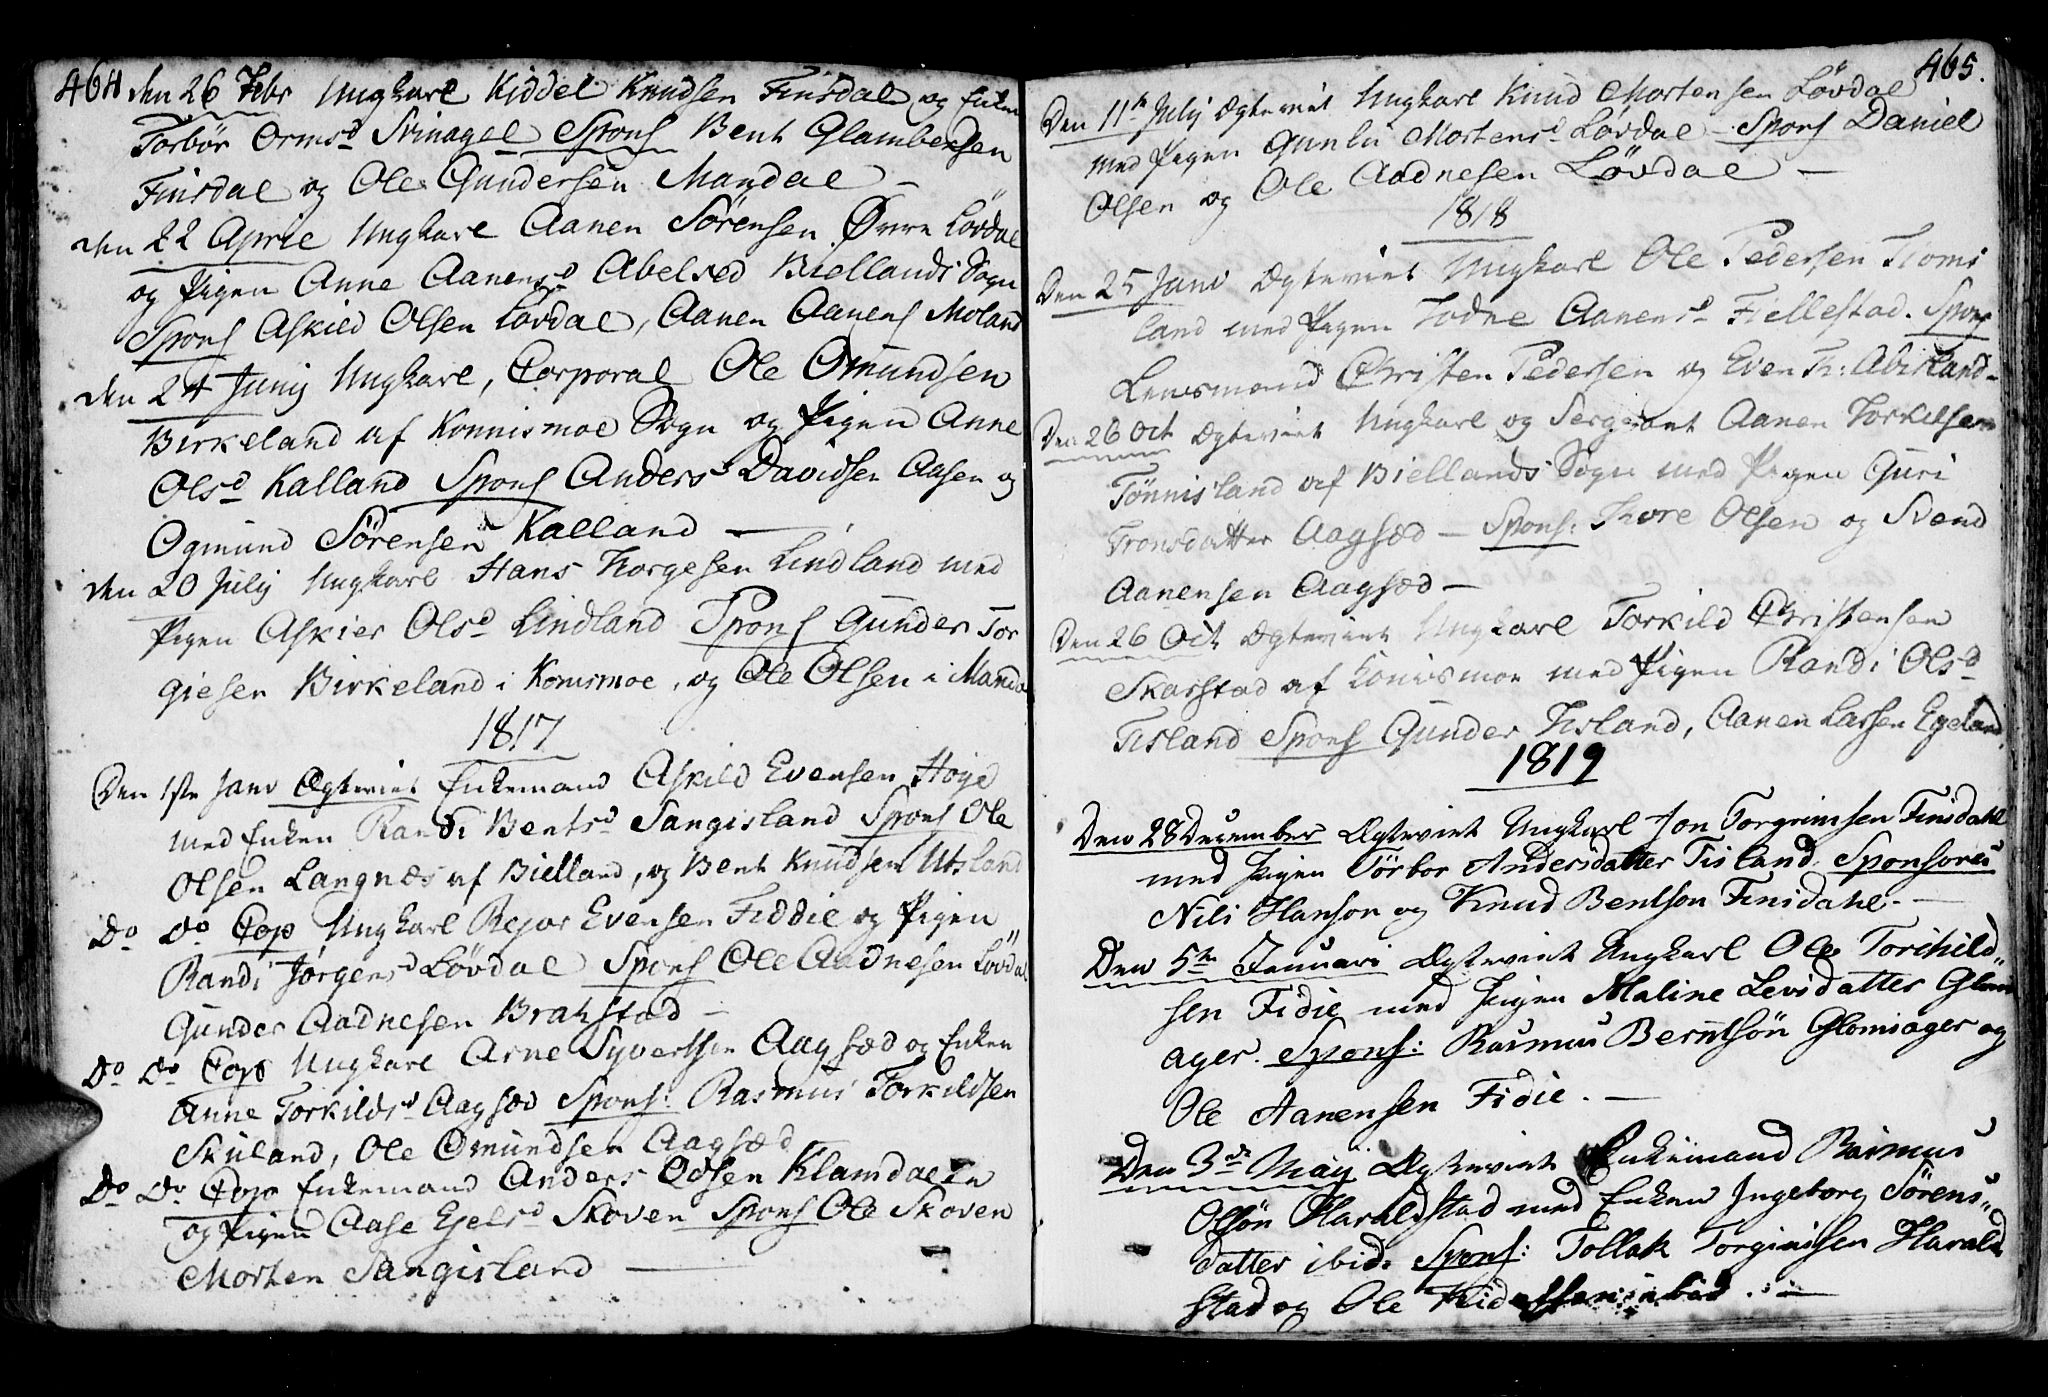 464
den 26 Febr Ungkarl Kiddel Knudsen Finsdal og Enken
Torbør Ormsd Svinagel Spons Bent Glambersen
Finsdal og Ole Gundersen Mandal –
den 22 April Ungkarl Aanen Sörensen Øvre Lövdal
og Pigen Anne Aanensd Abelsed Biellands Sogn
Spons Askild Olsen Lövdal, Aanen Aanens Moland
den 24 Junij Ungkarl, Corporal Ole Omundsen
Birkeland af Konnismoe Sogn og Pigen Anne
Olsd Kalland Spons Anders Davidsen Aasen og
Ogmund Sörensen Kalland –
den 20 Julij Ungkarl Hans Torgesen Lindland med
Pigen Askier Olsd Lindland Spons Gunder Tor
giesen Birkeland i Konismoe, og Ole Olsen i Manda
1817
Den 1ste Janv Ægteviet Enkemand Askild Evensen Høye
med Enken Randi Bentsd Sangisland Spons Ole
Olsen Langnæs af Bielland, og Bent Knudsen Utsland
Do Do Cop Ungkarl Rejor Evensen Fiddie og Pigen
Randi Jørgensd Lövdal Spons Ole Aadnesen Lövdal
Gunder Aadnesen Brahstad –
Do Do Cop Ungkarl Arne Syvertsen Aagsæd og Enken
Anne Torkildsd Aagsæd Spons: Rasmus Torkildsen
Skuland, Ole Omundsen Aagsæd
Do Do Cop Enkemand Anders Odsen Klamdalen
og Pigen Aase Ejelsd Skoven Spons Ole Skoven
Morten Sangisland –
465.
Den 11te Julij Ægteviet Ungkarl Knud Mortensen Lövdal
med Pigen Gunlu Mortensd Lövdal – Spons Daniel
Olsen og Ole Aadnesen Lövdal –
1818
Den 25 Janv Ægteviet Ungkarl Ole Pedersen Tioms
land med Pigen Todne Aanensd Fiellestad. Spons
Lensmand Christen Pedersen og Even Th: Abisland –
Den 26 Oct Ægteviet Ungkarl og Sergeant Aanen Torkelsen
Tönnisland af Biellands Sogn med Pigen Guri
Tronsdatter Aagsæd – Spons: Thore Olsen og Svend
Aanensen Aagsæd –
Den 26 Oct Ægteviet Ungkarl Torkild Christensen
Skarstad af Konismoe med Pigen Randi Olsd
Tisland Spons Gunder Tisland, Aanen Larsen Egeland,
1819
Den 28 December Ægteviet Ungkarl Jon Torgrimsen Finsdahl
med Pigen Törbor Andersdatter Tisland. Sponsores
Nils Hanson og Knud Bentson Finsdahl. –
Den 5te Januari Ægteviet Ungkarl Ole Torchild„
sen Fidie med Pigen Maline Levisdatter Glom
ager. Spons: Rasmus Berntsön Glomsager og
Ole Aanensen Fidie. –
Den 3de Maij Ægteviet Enkemand Rasmus
Olsön Haraldstad med Enken Ingeborg Sörens„
datter ibid. Spons: Tollak Torgimsen Harald
stad og Ole ibid. –